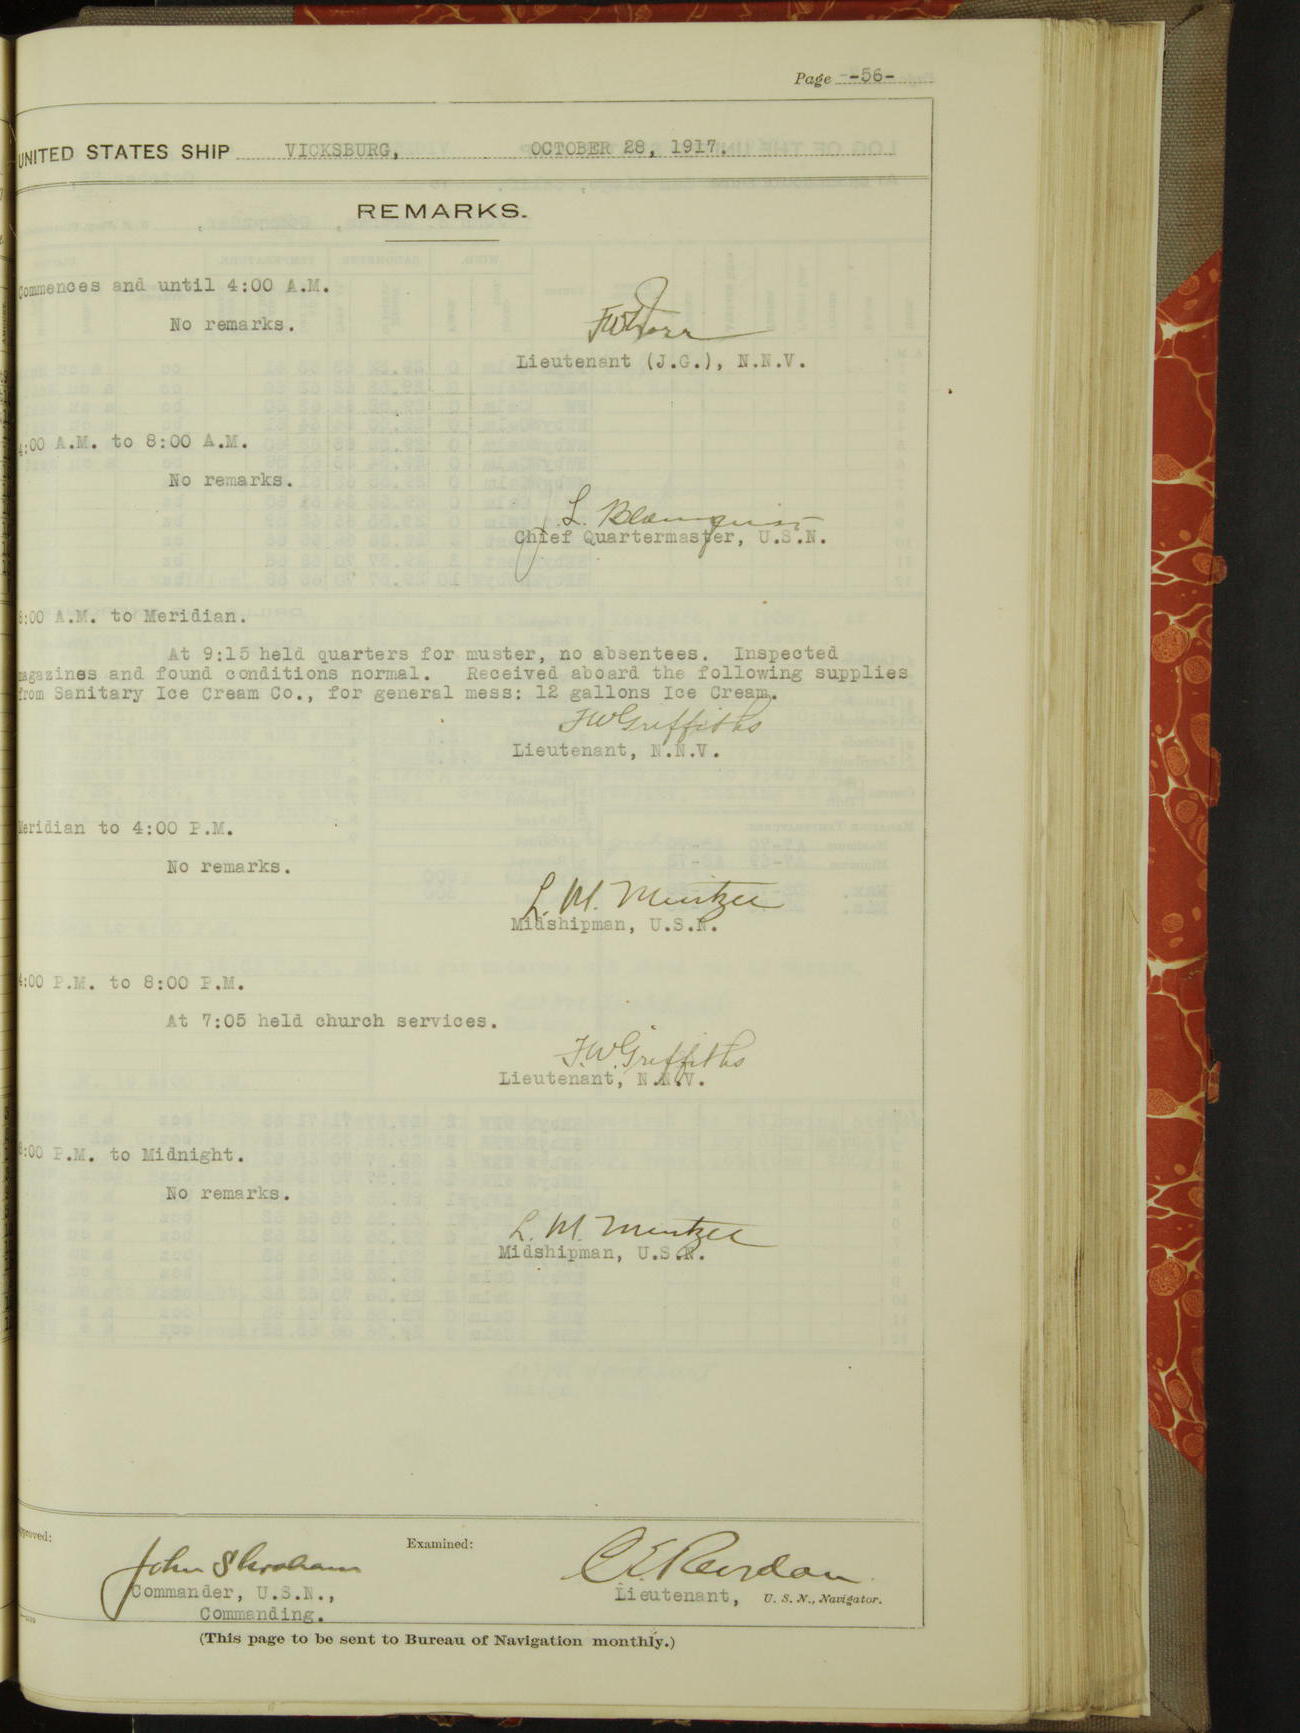 Page -56-
UNITED STATES SHIP VICKSBURG, OCTOBER 28, 1917.
REMARKS.
Commences and until 4:00 A.M.
No remarks.
Lieutenant (J.G.), N.N.V.
4:00 A.M. to 8:00 A.M.
No remarks.
L. Blomquist
Chief Quartermaster, U.S.N.
8:00 A.M. to Meridian.
At 9:15 held quarters for muster, no absentees. Inspected
magazines and found conditions normal. Received aboard the following supplies
from Sanitary Ice Cream Co., for general mess: 12 gallons Ice Cream.
F.W. Griffiths
Lieutenant, N.N.V.
Meridian to 4:00 P.M.
No remarks.
L. M. Mintzer
Midshipman, U.S.N.
4:00 P.M. to 8:00 P.M.
At 7:05 held church services.
F.W. Griffiths
Lieutenant, N.N.V.
8:00 P.M. to Midnight.
No remarks.
L. M. Mintzer
Midshipman, U.S.N.
Approved:
Examined:
John S Graham
C E Reordan
Commander, U.S.N.,
Lieutenant, U. S. N., Navigator.
Commanding.
(This page to be sent to Bureau of Navigation monthly.)